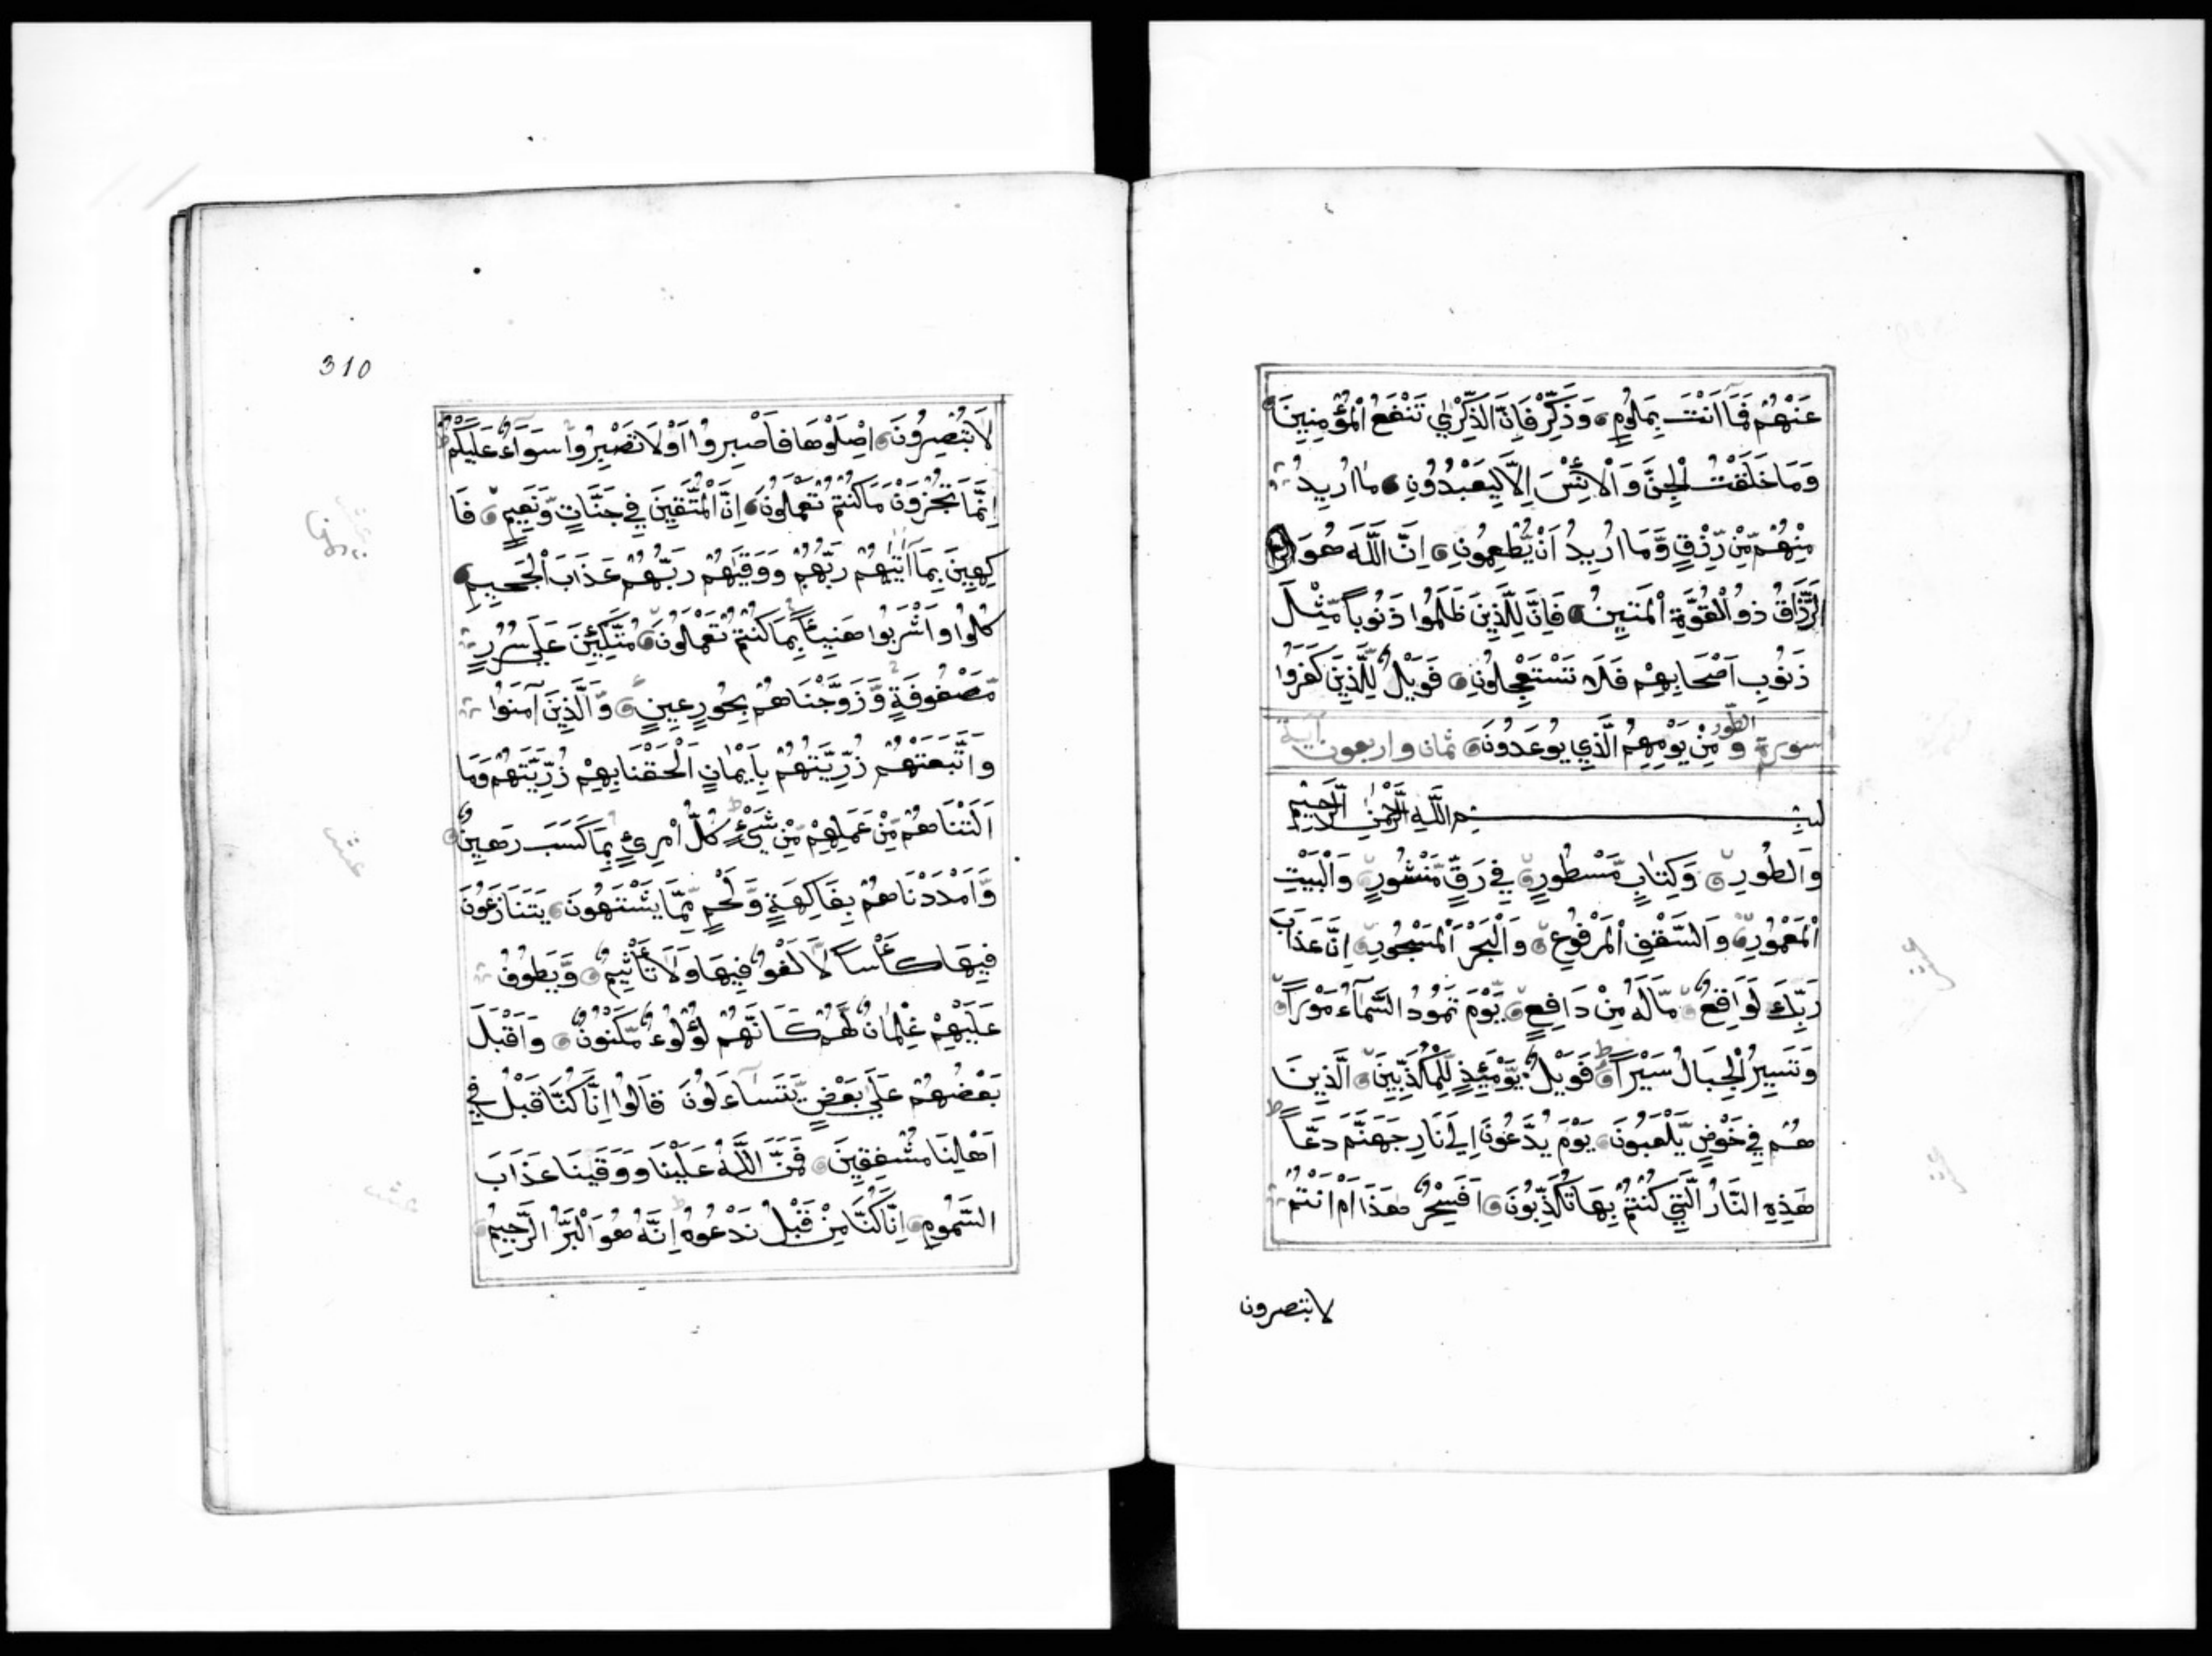 عَنْهُمْ فَمَآ اَنْتَ بِمَلُومٍ وَذَكِّرْ فَاِنَّ الذِّكْرٰي تَنْفَعُ الْمُؤْمِنِينَ
وَمَا خَلَقْتُ الْجِنَّ وَالْاِنْسَ اِلَّا لِيَعْبُدُونِ مٰا اُرِيدُ
مِنْهُمْ مِّنْ رِّزْقٍ وَّمَا اُرِيدُ اَنْ يُّطْعِمُونِ اِنَّ اللَّهَ هُوَ
الرَّزَّاقُ ذُو الْقُوَّةِ الْمَتِينُ فَاِنَّ لِلَّذِينَ ظَلَمُوا ذَنُوباً مِّثْلَ
ذَنُوبِ اَصْحَابِهِمْ فَلَا تَسْتَعْجِلُونِ فَوَيْلٌ لِّلَّذِينَ كَفَرُوا
سورة والطّور مِنْ يَوْمِهِمُ الَّذِي يُوعَدُونَ ثمان واربعون آية
بِسْمِ اللَّهِ الرَّحْمٰنِ الرَّحِيمِ
وَالطُّورِ وَكِتٰابٍ مَّسْطُورٍ فِي رَقٍّ مَّنْشُورٍ وَالْبَيْتِ
الْمَعْمُورِ وَالسَّقْفِ الْمَرْفُوعِ وَالْبَحْرِ الْمَسْجُورِ اِنَّ عَذَابَ
رَبِّكَ لَوَاقِعٌ مَّا لَهُ مِنْ دَافِعٍ يَّوْمَ تَمُورُ السَّمَآءُ مَوْراً
وَتَسِيرُ الْجِبَالُ سَيْراً فَوَيْلٌ يَّوْمَئِذٍ لِّلْمُكَذِّبِينَ الَّذِينَ
هُمْ فِي خَوْضٍ يَّلْعَبُونَ يَوْمَ يُدَعُّونَ اِلٰي نَارِ جَهَنَّمَ دَعّاً
هٰذِهِ النَّارُ الَّتِي كُنْتُمْ بِهَا تُكَذِّبُونَ اَفَسِحْرٌ هٰذَا اَمْ اَنْتُمْ
لا تبصرون
310
لَا تُبْصِرُونَ اِصْلَوْهَا فَاصْبِرُوا اَوْ لَا تَصْبِرُوا سَوَآءٌ عَلَيْكُمْ
اِنَّمَا تُجْزَوْنَ مَا كُنْتُمْ تَعْمَلُونَ اِنَّ الْمُتَّقِينَ فِي جَنَّاتٍ وَّنَعِيمٍ فَا
كِهِينَ بِمَآ اٰتٰيهُمْ رَبُّهُمْ وَوَقٰيهُمْ رَبُّهُمْ عَذَابَ الْجَحِيمِ
كُلُوا وَاشْرَبُوا هَنِيئاً بِمَا كُنْتُمْ تَعْمَلُونَ مُتَّكِئِينَ عَلٰي سُرُرٍ
مَّصْفُوفَةٍ وَّزَوَّجْنَاهُمْ بِحُورٍ عِينٍ وَّالَّذِينَ آمَنُوا
وَاتَّبَعَتْهُمْ ذُرِّيَّتُهُمْ بِاِيْمٰانٍ اَلْحَقْنَا بِهِمْ ذُرِّيَّتَهُمْ وَمَا
اَلَتْنَاهُمْ مِّنْ عَمَلِهِمْ مِّنْ شَيْءٍ كُلُّ امْرِئٍ بِمَا كَسَبَ رَهِينٌ
وَّاَمْدَدْنَاهُمْ بِفَاكِهَةٍ وَّلَحْمٍ مِّمَّا يَشْتَهُونَ يَتَنَازَعُونَ
فِيهَا كَأْساً لَّا لَغْوٌ فِيهَا وَلَا تَأْثِيمٌ وَّيَطُوفُ
عَلَيْهِمْ غِلْمٰانٌ لَّهُمْ كَاَنَّهُمْ لُؤْلُوءٌ مَّكْنُونٌ وَاَقْبَلَ
بَعْضُهُمْ عَلٰي بَعْضٍ يَّتَسَاءَلُونَ قَالُوا اِنَّا كُنَّا قَبْلُ فِي
اَهْلِنَا مُشْفِقِينَ فَمَنَّ اللَّهُ عَلَيْنَا وَوَقٰينَا عَذَابَ
السَّمُومِ اِنَّا كُنَّا مِنْ قَبْلُ نَدْعُوهُ اِنَّهُ هُوَ الْبَرُّ الرَّحِيمُ
عشر
عشر